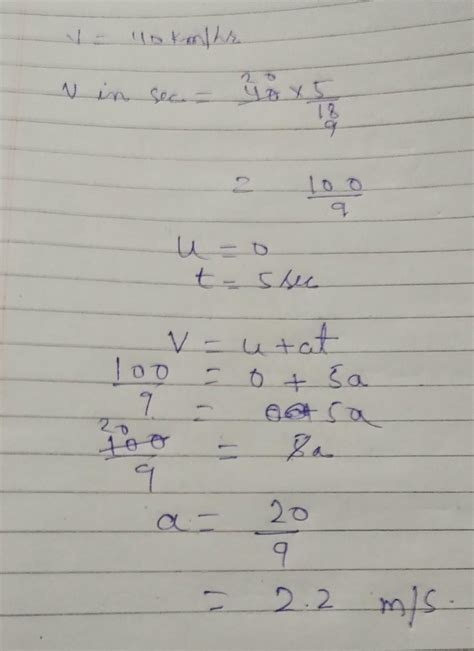 V = 40 km/hr
20
V in sec = 40 × 5/18
9
= 100/9
u = 0
t = 5 sec
V = u + at
100/9 = 0 + 5a
= 5a
20
100/9 = 5a
a = 20/9
= 2.2 m/s.